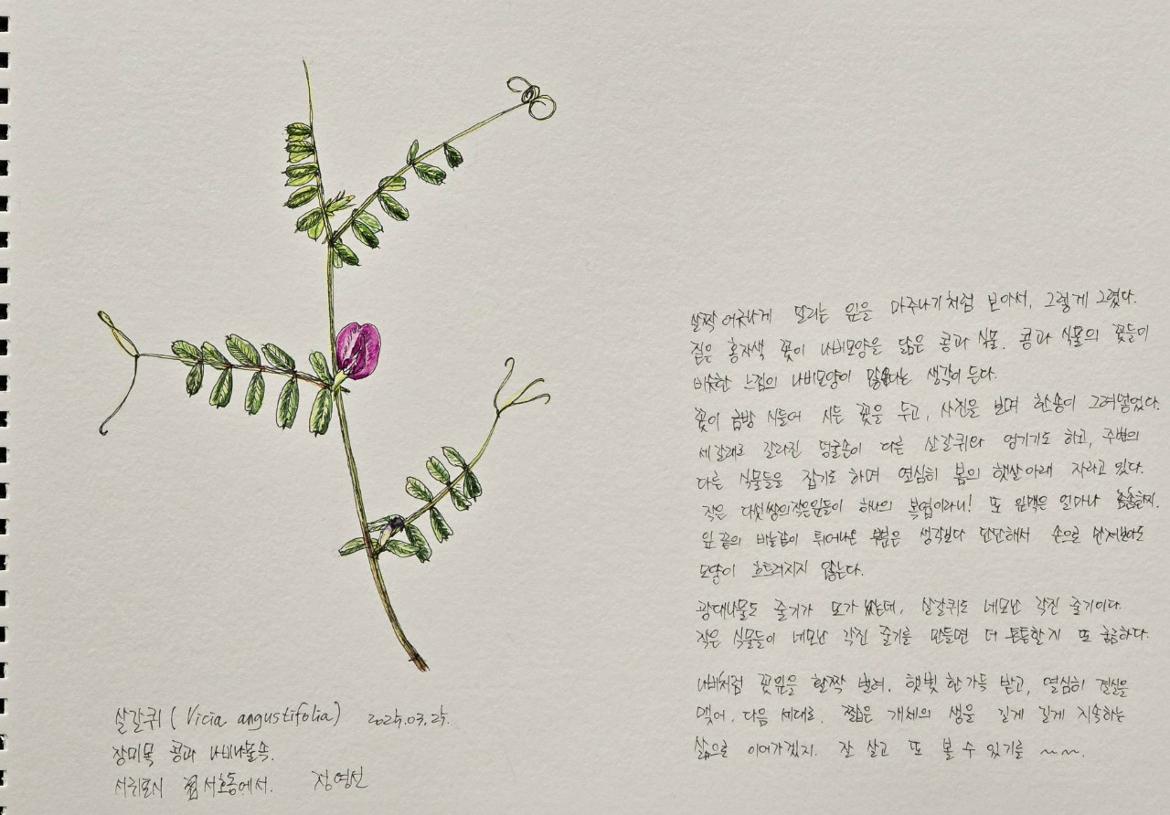 살짝 어긋나게 달리는 잎을 마주나기처럼 보아서, 그렇게 그렸다.
짙은 홍자색 꽃이 나비모양을 닮은 콩과 식물. 콩과 식물의 꽃들이
비슷한 느낌의 나비모양이 많겠다는 생각이 든다.
꽃이 금방 시들어 시든 꽃을 두고, 사진을 보며 한송이 그려넣었다.
세갈래로 갈라진 덩굴손이 다른 살갈퀴와 엉기기도 하고, 주변의
다른 식물들을 잡기도 하며 열심히 봄의 햇살아래 자라고 있다.
작은 다섯쌍의 작은잎들이 하나의 복엽이라니! 또 잎맥은 얼마나 촘촘한지.
잎 끝의 바늘같이 튀어나온 부분은 생각보다 단단해서 손으로 만져보아도
모양이 흐트러지지 않는다.
광대나물도 줄기가 모가 났는데, 살갈퀴도 네모난 각진 줄기이다.
작은 식물들이 네모난 각진 줄기를 만들면 더 튼튼할지 또 궁금하다.
나비처럼 꽃잎을 활짝 벌려. 햇빛 한가득 받고, 열심히 결실을
맺어. 다음 세대로. 짧은 개체의 생을 길게 길게 지속하는
삶으로 이어가겠지. 잘 살고 또 볼 수 있기를 ~~.
살갈퀴 (Vicia angustifolia) 2025.03.25.
장미목 콩과 나비나물속.
서귀포시 서호동에서. 장영선